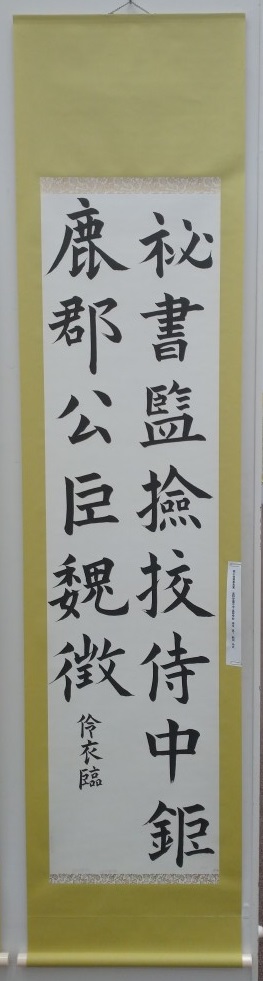 祕書監撿挍侍中鉅
鹿郡公臣魏徴
伶衣臨